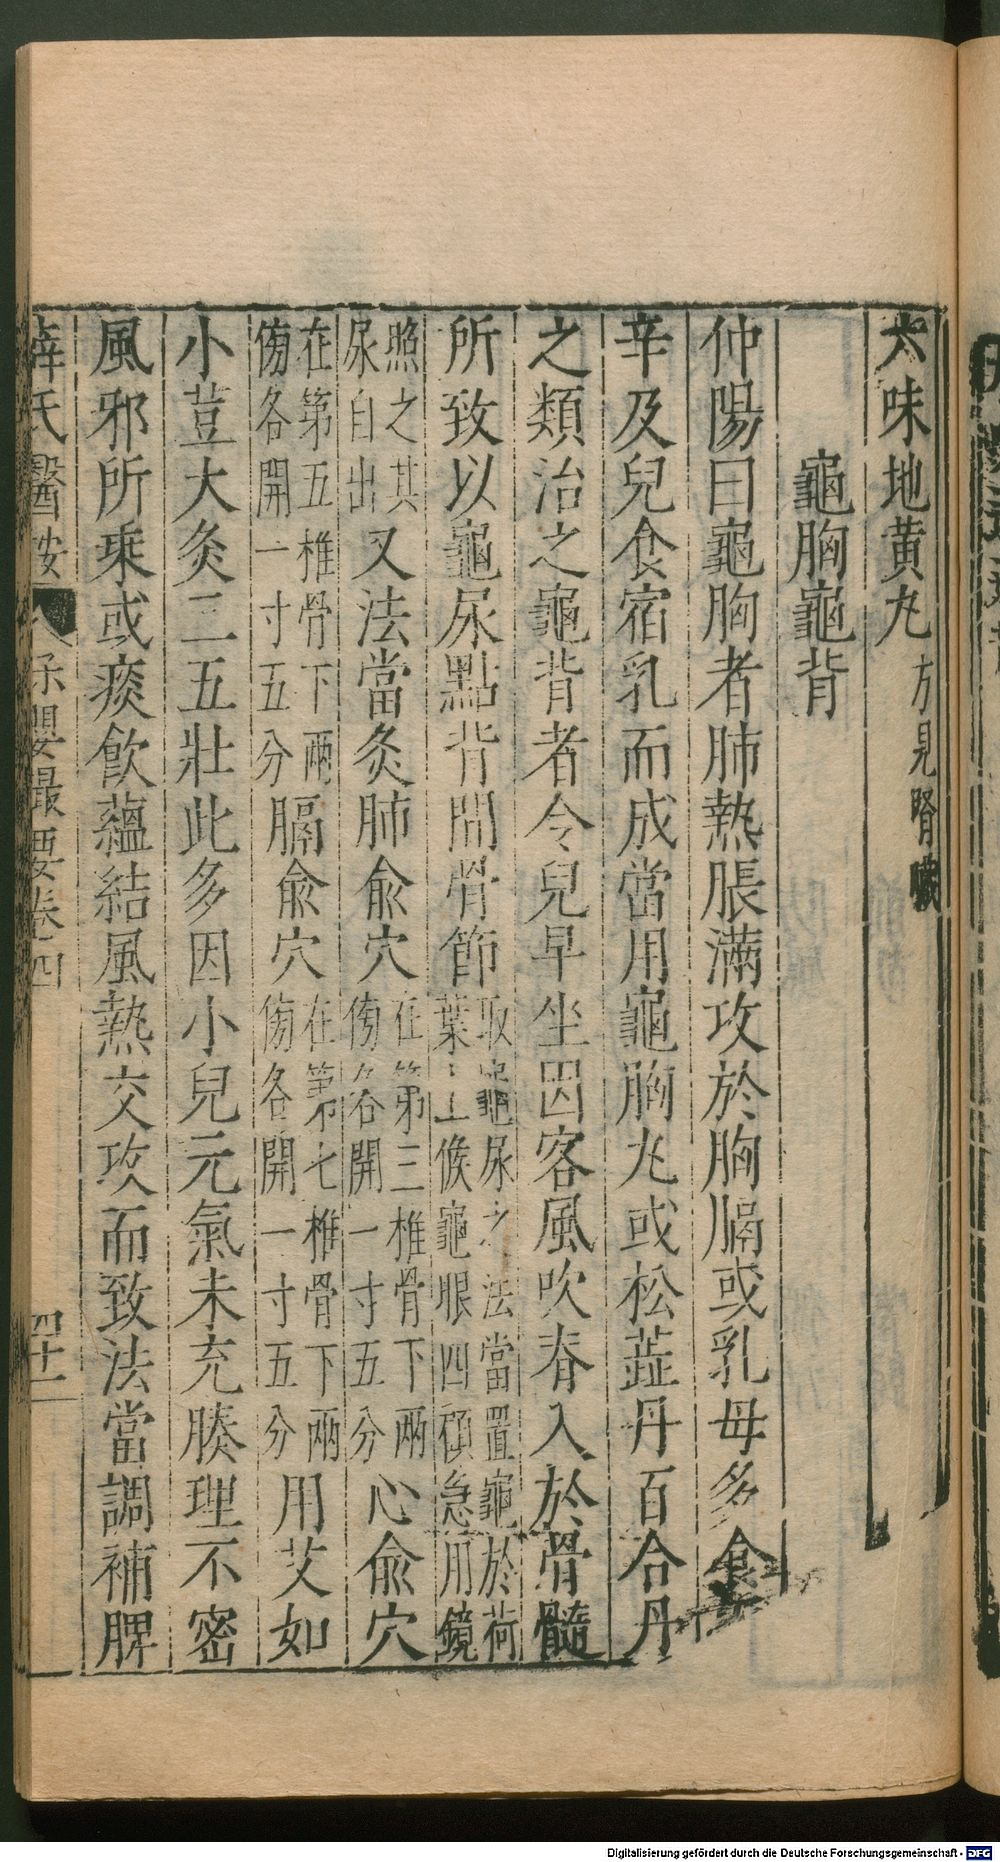 六味地黃丸方見腎臟
龜胸龜背
仲陽曰龜胸者肺熱脹滿攻於胸膈或乳母多食
辛及兒食宿乳而成當用龜胸丸或松蕋丹百合丹
之類治之龜背者令兒早坐因客風吹脊入於骨髓
所致以龜尿點背間骨節取龜尿之法當置龜於荷葉上候龜眼四顧急用鏡
照之其尿自出又法當灸肺俞穴在第三椎骨下兩傍各開一寸五分心俞穴
在第五椎骨下兩傍各開一寸五分膈俞穴在第七椎骨下兩傍各開一寸五分用艾如
小荳大灸三五壯此多因小兒元氣未充腠理不密
風邪所乘或痰飲蘊結風熱交攻而致法當調補脾
薛氏醫按 保嬰撮要卷四 四十二
Digitalisierung gefördert durch die Deutsche Forschungsgemeinschaft - DFG